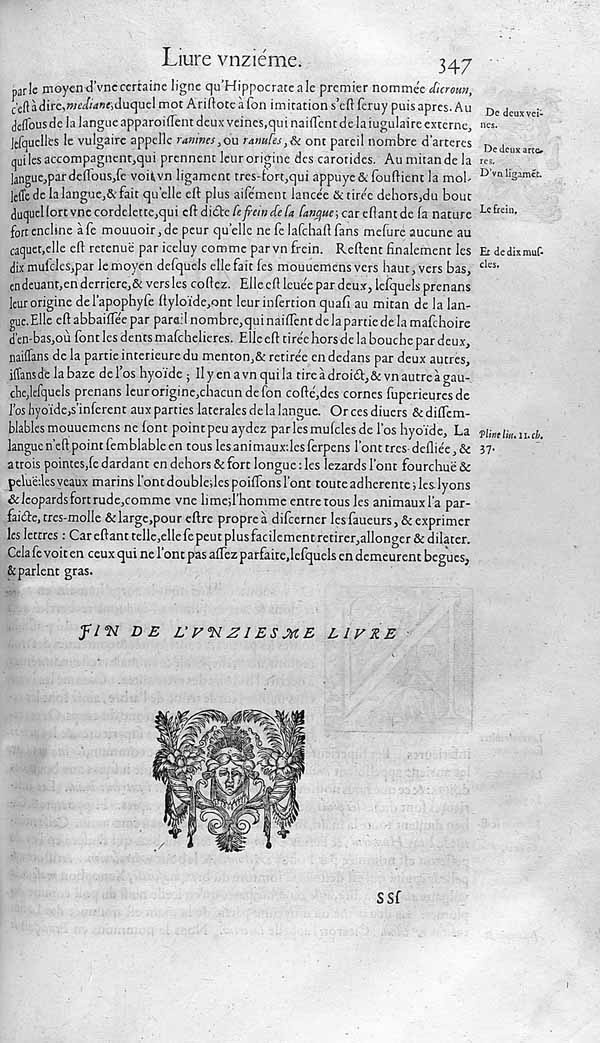 Liure vnziéme. 347
par le moyen d'vne certaine ligne qu'Hippocrate a le premier nommée dicroun,
c'eſt à dire, mediane, duquel mot Ariſtote à ſon imitation s'eſt ſeruy puis apres. Au
deſſous de la langue apparoiſſent deux veines, qui naiſſent de la iugulaire externe,
leſquelles le vulgaire appelle ranines, ou ranules, & ont pareil nombre d'arteres
qui les accompagnent, qui prennent leur origine des carotides. Au mitan de la
langue, par deſſous, ſe voit vn ligament tres-fort, qui appuye & ſouſtient la mol-
leſſe de la langue, & fait qu'elle eſt plus aiſément lancée & tirée dehors, du bout
duquel ſort vne cordelette, qui eſt dicte le frein de la langue; car eſtant de ſa nature
fort encline à ſe mouuoir, de peur qu'elle ne ſe laſchaſt ſans meſure aucune au
caquet, elle eſt retenuë par iceluy comme par vn frein. Reſtent finalement les
dix muſcles, par le moyen deſquels elle fait ſes mouuemens vers haut, vers bas,
en deuant, en derriere, & vers les coſtez. Elle eſt leuée par deux, leſquels prenans
leur origine de l'apophyſe ſtyloïde, ont leur inſertion quaſi au mitan de la lan-
gue. Elle eſt abbaiſſée par pareil nombre, qui naiſſent de la partie de la maſchoire
d'en-bas, où ſont les dents maſchelieres. Elle eſt tirée hors de la bouche par deux,
naiſſans de la partie interieure du menton, & retirée en dedans par deux autres,
iſſans de la baze de l'os hyoïde; Il y en a vn qui la tire à droict, & vn autre à gau-
che, leſquels prenans leur origine, chacun de ſon coſté, des cornes ſuperieures de
l'os hyoïde, s'inſerent aux parties laterales de la langue. Or ces diuers & diſſem-
blables mouuemens ne ſont point peu aydez par les muſcles de l'os hyoïde, La
langue n'eſt point ſemblable en tous les animaux: les ſerpens l'ont tres-deſliée, &
a trois pointes, ſe dardant en dehors & fort longue: les lezards l'ont fourchuë &
peluë: les veaux marins l'ont double; les poiſſons l'ont toute adherente; les lyons
& leopards fort rude, comme vne lime; l'homme entre tous les animaux l'a par-
faicte, tres-molle & large, pour eſtre propre à diſcerner les ſaueurs, & exprimer
les lettres: Car eſtant telle, elle ſe peut plus facilement retirer, allonger & dilater.
Cela ſe voit en ceux qui ne l'ont pas aſſez parfaite, leſquels en demeurent begues,
& parlent gras.
De deux vei-
nes.
De deux arte-
res.
D'vn ligamẽt.
Le frein.
Et de dix muſ-
cles.
Pline liu. 11. ch.
37.
FIN DE L'VNZIESME LIVRE
SSſ